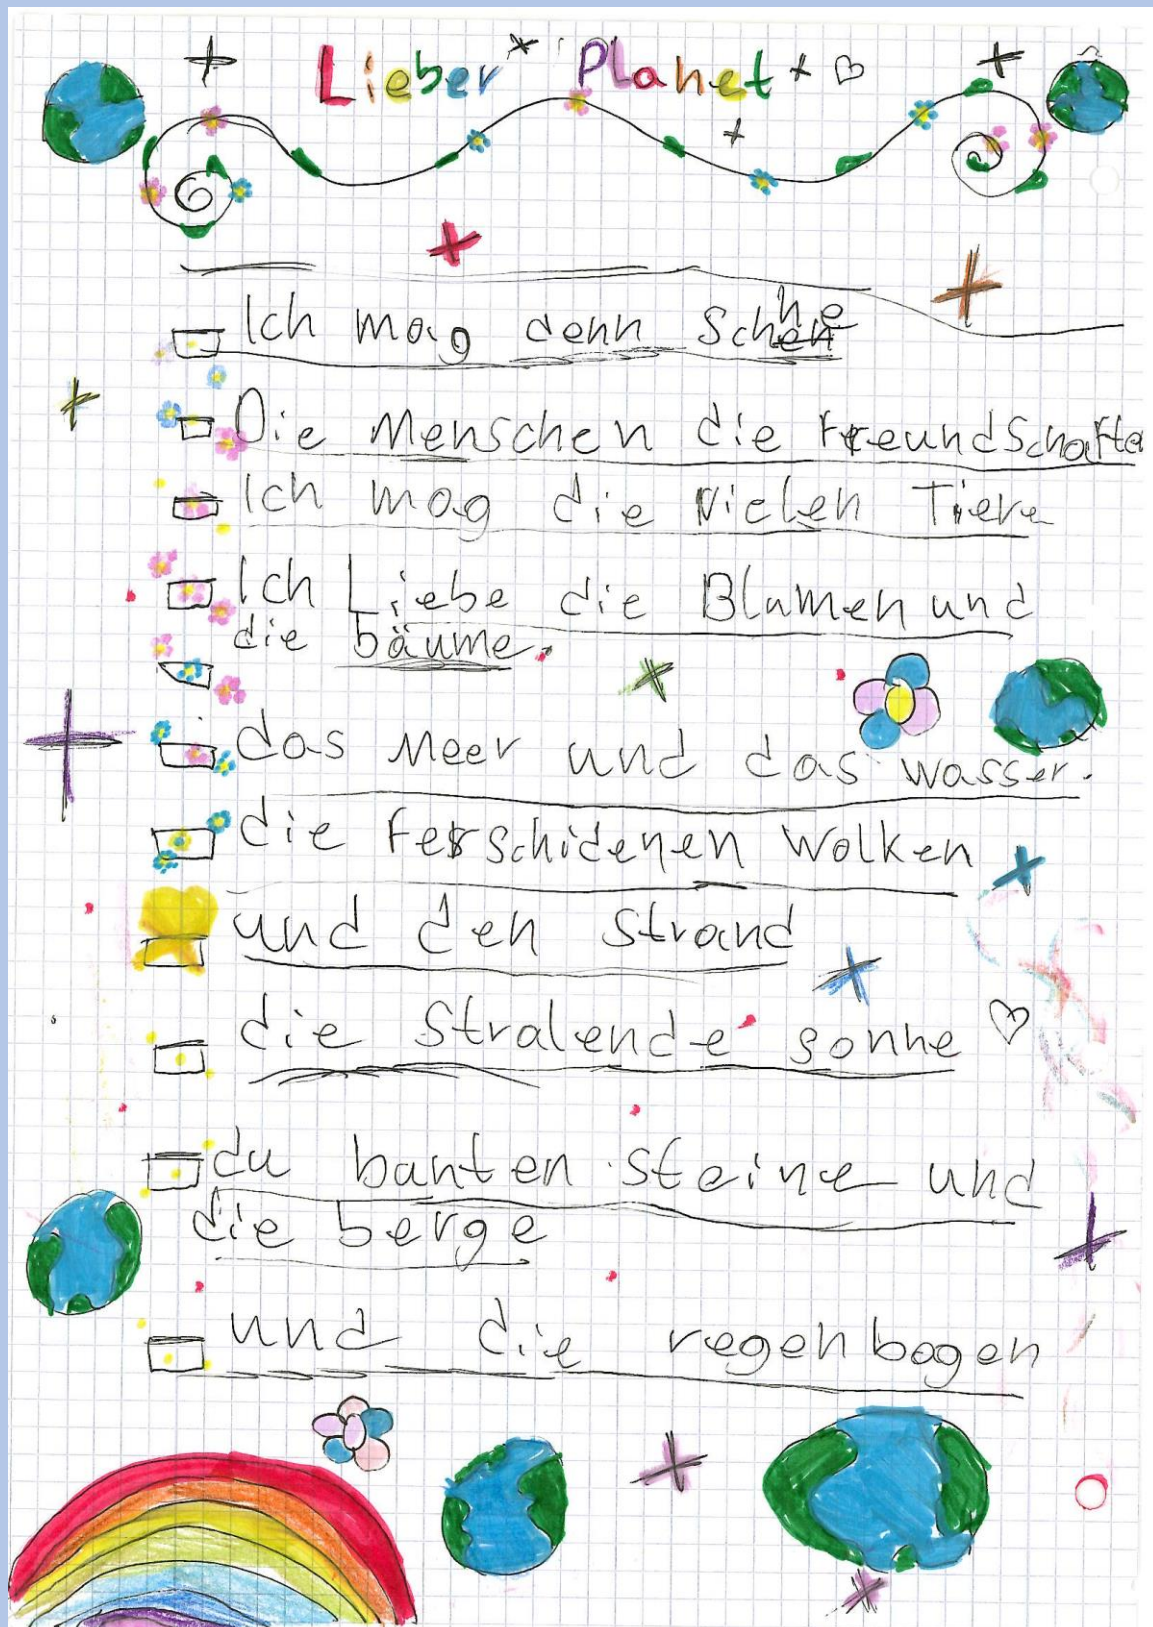 Lieber Planet
Ich mag denn Schne
Die Menschen die Freundschafte
Ich mag die Vielen Tiere
Ich Liebe die Blumen und
die bäume.
das Meer und das wasser.
die Ferschidenen Wolken
und den Strand
die Stralende sonne
du banten Steine und
die berge
und die regenbogen